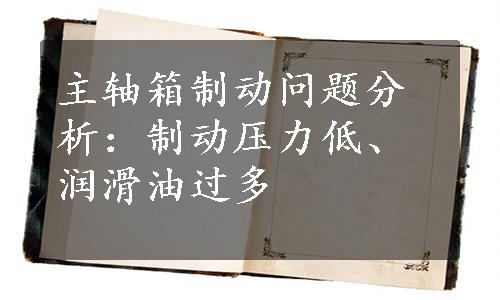 主轴箱制动问题分
析：制动压力低、
润滑油过多